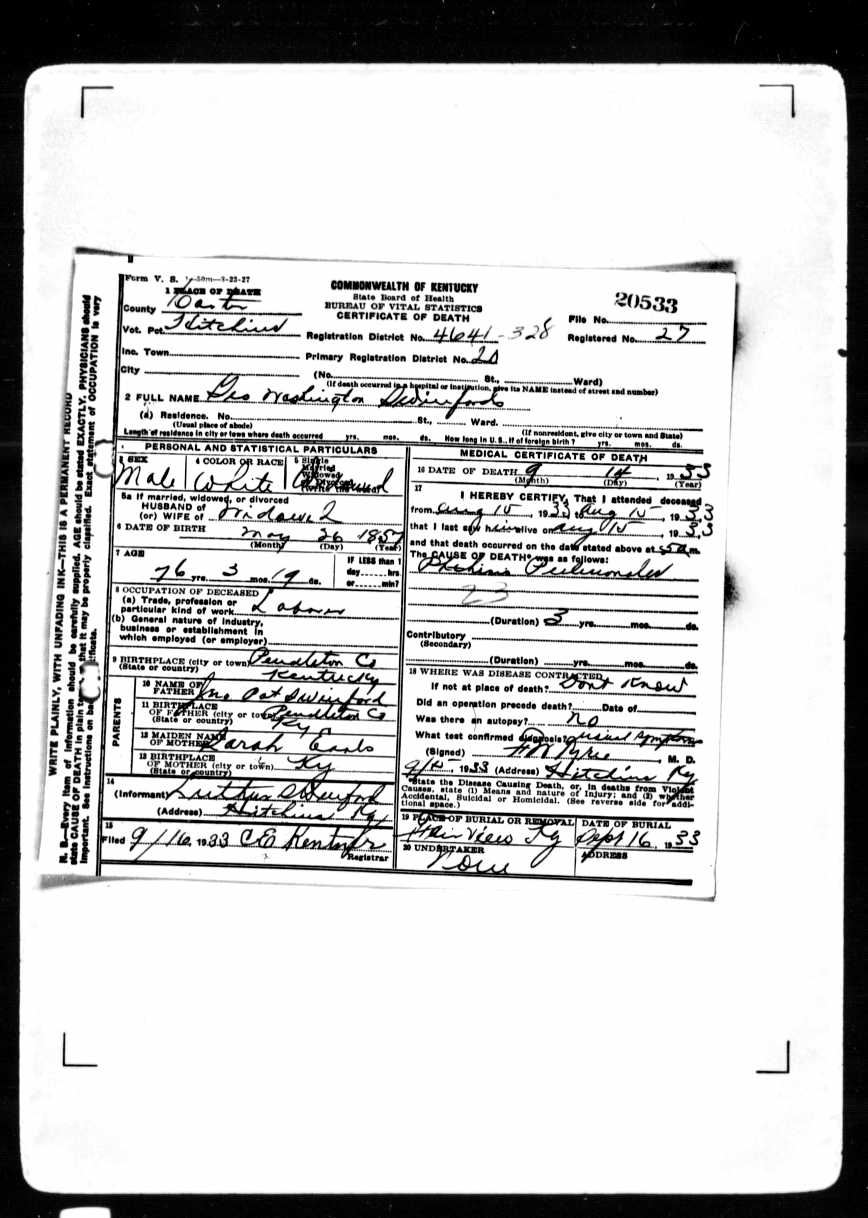 Form V. S. 1-50m-3-23-27
1 PLACE OF DEATH
County Carter
Vot. Pct. Hitchins
Inc. Town
City
COMMONWEALTH OF KENTUCKY
State Board of Health
BUREAU OF VITAL STATISTICS
CERTIFICATE OF DEATH
20533
File No.
Registration District No. 4641-328 Registered No. 27
Primary Registration District No. 20
(No. St., Ward)
(If death occurred in a hospital or institution, give its NAME instead of street and number)
2 FULL NAME Geo Washington Swinford
(a) Residence. No. St., Ward.
(Usual place of abode) (If nonresident, give city or town and State)
Length of residence in city or town where death occurred yrs. mos. ds. How long in U. S., if of foreign birth? yrs. mos. ds.
PERSONAL AND STATISTICAL PARTICULARS
3 SEX Male
4 COLOR OR RACE White
5 Single
Married
Widowed
or Divorced
5a If married, widowed, or divorced
HUSBAND of
(or) WIFE of Widowed
6 DATE OF BIRTH May 26 1857
(Month) (Day) (Year)
7 AGE
76 yrs. 3 mos. 19 ds.
IF LESS than 1
day hrs
or min?
8 OCCUPATION OF DECEASED
(a) Trade, profession or
particular kind of work Laborer
(b) General nature of industry,
business or establishment in
which employed (or employer)
9 BIRTHPLACE (city or town) Pendleton Co
(State or country) Kentucky
PARENTS
10 NAME OF
FATHER Jno Pat Swinford
11 BIRTHPLACE
OF FATHER (city or town) Pendleton Co
(State or country) Ky
12 MAIDEN NAME
OF MOTHER Sarah Earls
13 BIRTHPLACE
OF MOTHER (city or town) Ky
(State or country)
14
(Informant) Luther Swinford
(Address) Hitchins Ky
15
Filed 9/16, 1933 C E Kentnfr
Registrar
MEDICAL CERTIFICATE OF DEATH
16 DATE OF DEATH 9 14, 1933
(Month) (Day) (Year)
17
I HEREBY CERTIFY, That I attended deceased
from Aug 15, 1933, to Aug 15, 1933
that I last saw him alive on Aug 15, 1933
and that death occurred on the date stated above at 5 a m.
The CAUSE OF DEATH* was as follows:
Phthisis Pulmonales
23
(Duration) 3 yrs. mos. ds.
Contributory
(Secondary)
(Duration) yrs. mos. ds.
18 WHERE WAS DISEASE CONTRACTED
If not at place of death? Dont Know
Did an operation precede death? Date of
Was there an autopsy? no
What test confirmed diagnosis? usual symptoms
(Signed) , M. D.
9/15, 1933 (Address) Hitchins Ky
*State the Disease Causing Death, or, in deaths from Violent
Causes, state (1) Means and nature of Injury; and (2) whether
Accidental, Suicidal or Homicidal. (See reverse side for addi-
tional space.)
19 PLACE OF BURIAL OR REMOVAL Fair View Ky
DATE OF BURIAL Sept 16, 1933
20 UNDERTAKER None
ADDRESS
WRITE PLAINLY, WITH UNFADING INK—THIS IS A PERMANENT RECORD
N. B.—Every item of information should be carefully supplied. AGE should be stated EXACTLY. PHYSICIANS should
state CAUSE OF DEATH in plain terms, that it may be properly classified. Exact statement of OCCUPATION is very
important. See instructions on back of certificate.